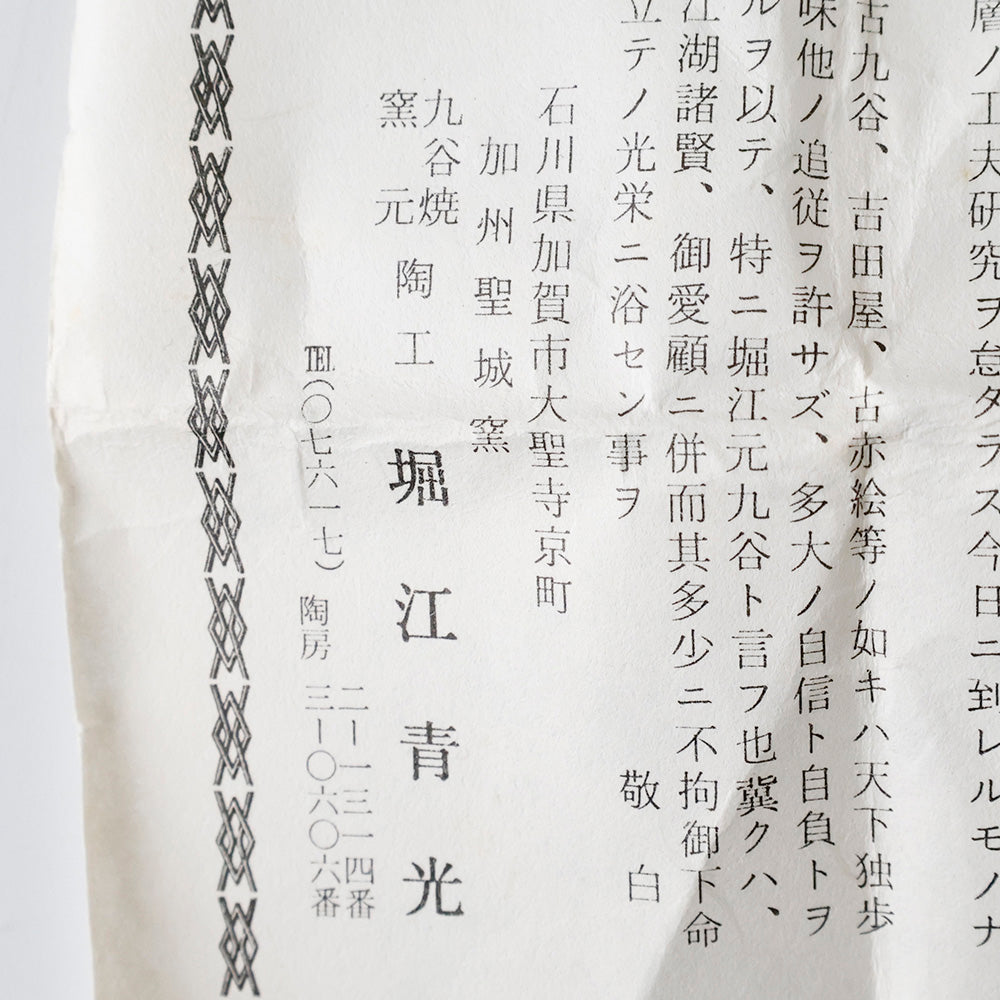 層ノ工夫研究ヲ怠ダラズ今日ニ到レルモノナ
古九谷、吉田屋、古赤絵等ノ如キハ天下独歩
味他ノ追従ヲ許サズ、多大ノ自信ト自負トヲ
ルヲ以テ、特ニ堀江元九谷ト言フ也冀クハ、
江湖諸賢、御愛顧ニ併而其多少ニ不拘御下命
立テノ光栄ニ浴セン事ヲ 敬白
石川県加賀市大聖寺京町
加州聖城窯
九谷焼
窯元 陶工 堀江青光
TEL(〇七六一七) 二―一三一四番
陶房 三―〇六〇六番